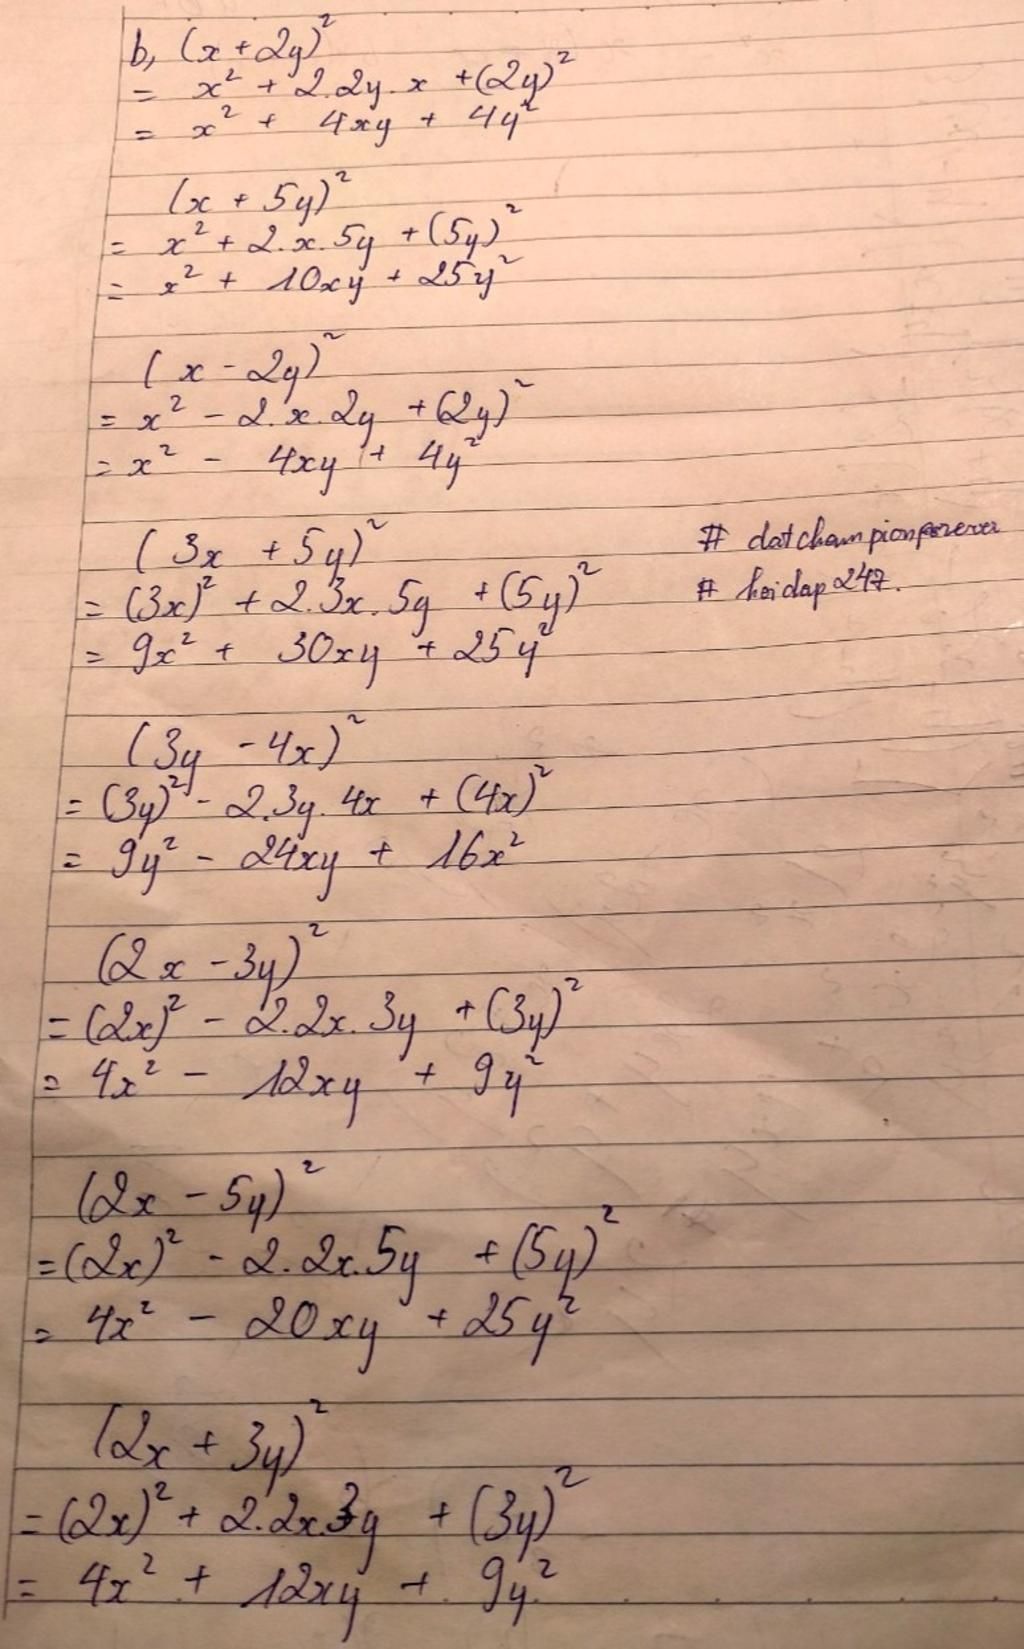 b, (x + 2y)²
= x² + 2.2y.x + (2y)²
= x² + 4xy + 4y²
(x + 5y)²
= x² + 2.x.5y + (5y)²
= x² + 10xy + 25y²
(x - 2y)²
= x² - 2.x.2y + (2y)²
= x² - 4xy + 4y²
(3x + 5y)²
# datchampionforever
= (3x)² + 2.3x.5y + (5y)²
# hoidap247.
= 9x² + 30xy + 25y²
(3y - 4x)²
= (3y)² - 2.3y.4x + (4x)²
= 9y² - 24xy + 16x²
(2x - 3y)²
= (2x)² - 2.2x.3y + (3y)²
= 4x² - 12xy + 9y²
(2x - 5y)²
= (2x)² - 2.2x.5y + (5y)²
= 4x² - 20xy + 25y²
(2x + 3y)²
= (2x)² + 2.2x.3y + (3y)²
= 4x² + 12xy + 9y²